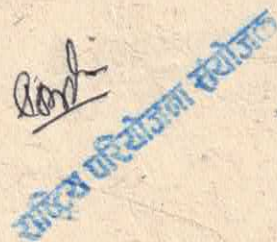 राष्ट्रिय परियोजना संयोजक